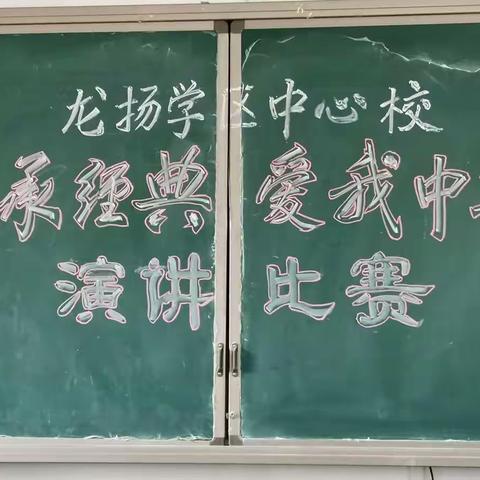 龙扬学区中心校
承经典 爱我中
演讲比赛